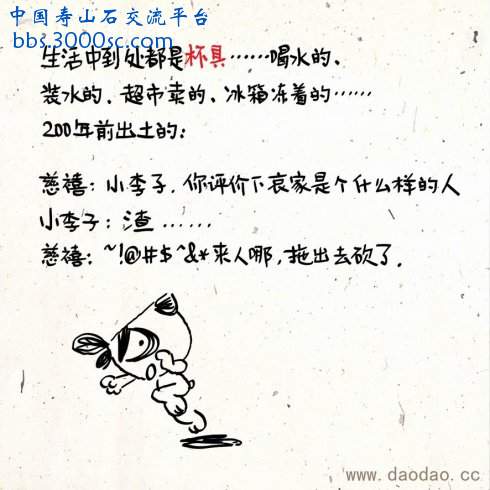 中国寿山石交流平台
bbs.3000sc.com
生活中到处都是杯具……喝水的、
装水的、超市卖的、冰箱冻着的……
200年前出土的:
慈禧:小李子,你评价下哀家是个什么样的人
小李子:渣……
慈禧:~!@#$^&*来人哪,拖出去砍了.
www.daodao.cc